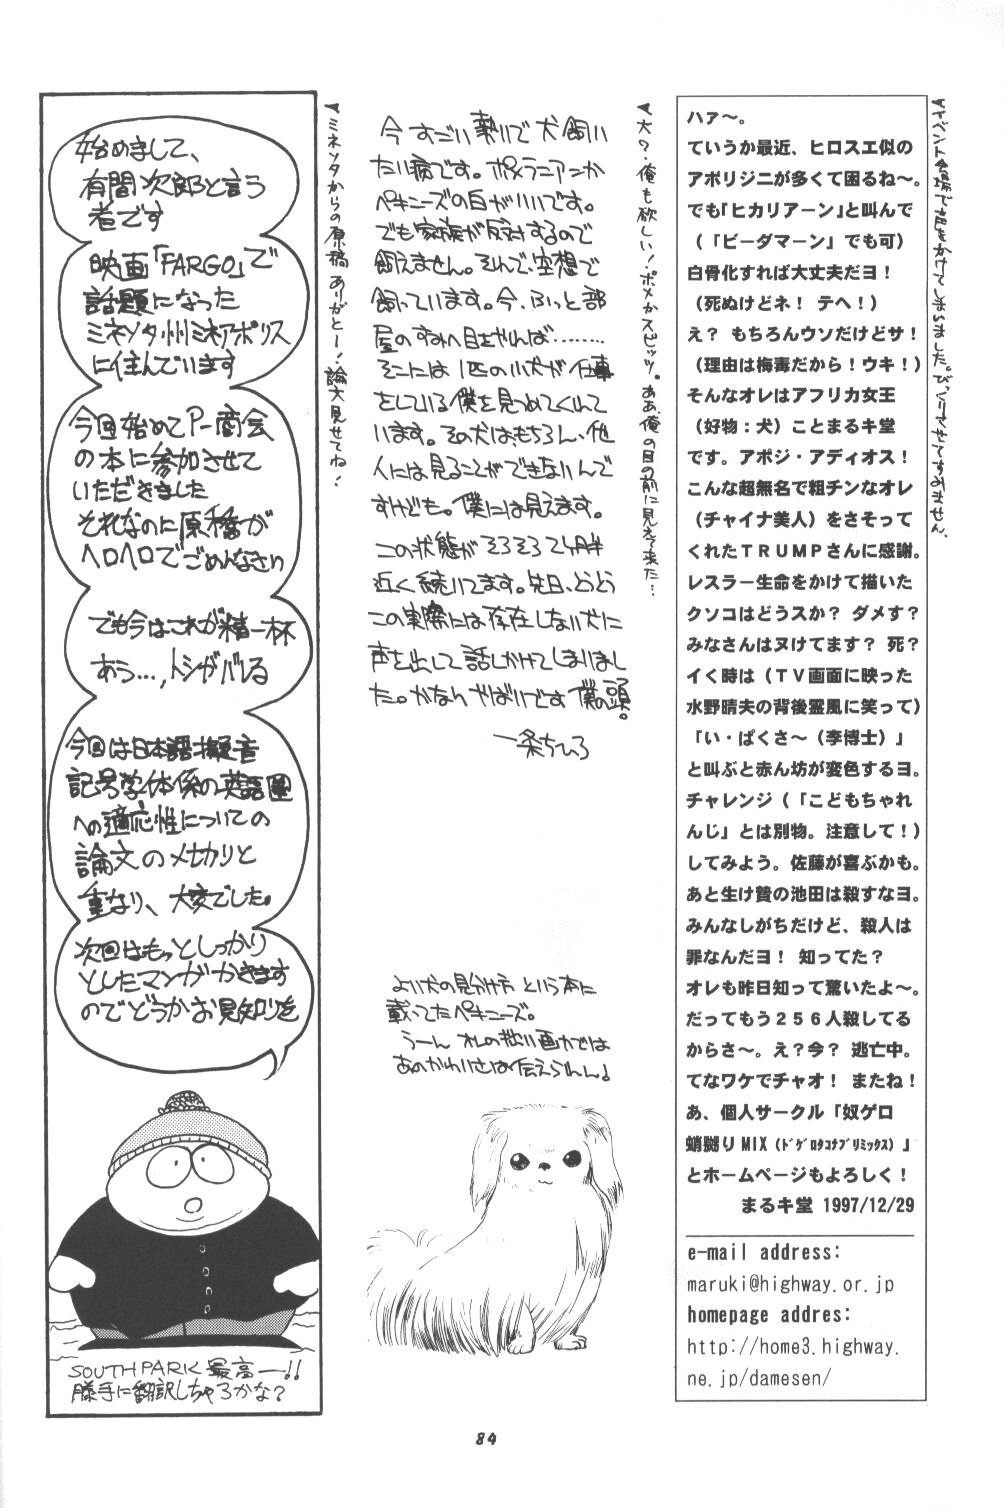 始めまして、
有間次郎と言う
者です
映画「FARGO」で
話題になった
ミネソタ州ミネアポリス
に住んでいます
今回始めてP-商会
の本に参加させて
いただきました
それなのに原稿が
ヘロヘロでごめんなさい
でも今はこれが精一杯
あう…,トシがバレる
今回は日本語擬音
記号学体係の英語圏
への適応性についての
論文の〆切りと
重なり、大変でした。
次回はもっとしっかり
としたマンガかきます
のでどうかお見知りを
SOUTH PARK 最高ー!!
勝手に翻訳しちゃろかな?
▼ミネソタからの原稿ありがとー!論文見せてね!
今すごい勢いで犬飼い
たい病です。ポメラニアンか
ペキニーズの白がいいです。
でも家族が反対するので
飼えません。それで、空想で
飼っています。今、ふっと部
屋のすみへ目をやれば………
そこには1匹の小犬が仕事
をしている僕を見つめてくれて
います。その犬は、もちろん、他
人には見ることができないんで
すけども。僕には見えます。
この状態がそろそろ2ヶ月半
近く続いてます。先日、とうとう
この実際には存在しない犬に
声を出して話しかけてしまいまし
た。かなりやばいです 僕の頭。
一条ちひろ
よい犬の見分け方という本に
載ってたペキニーズ。
うーん オレの拙い画力では
あのかわいさは伝えられん♩
▼犬?・俺も欲しい!ポメかスピッツ。ああ、俺の目の前に見えて来た…
ハァ～。
ていうか最近、ヒロスエ似の
アボリジニが多くて困るね～。
でも「ヒカリアーン」と叫んで
（「ビーダマーン」でも可）
白骨化すれば大丈夫だヨ！
（死ぬけどネ！ テヘ！）
え？ もちろんウソだけどサ！
（理由は梅毒だから！ウキ！）
そんなオレはアフリカ女王
（好物：犬）ことまるキ堂
です。アボジ・アディオス！
こんな超無名で粗チンなオレ
（チャイナ美人）をさそって
くれたＴＲＵＭＰさんに感謝。
レスラー生命をかけて描いた
クソコはどうスか？ ダメす？
みなさんはヌけてます？ 死？
イく時は（ＴＶ画面に映った
水野晴夫の背後霊風に笑って）
「い・ぱくさ～（李博士）」
と叫ぶと赤ん坊が変色するヨ。
チャレンジ（「こどもちゃれ
んじ」とは別物。注意して！）
してみよう。佐藤が喜ぶかも。
あと生け贄の池田は殺すなヨ。
みんなしがちだけど、殺人は
罪なんだヨ！ 知ってた？
オレも昨日知って驚いたよ～。
だってもう２５６人殺してる
からさ～。え？今？ 逃亡中。
てなワケでチャオ！ またね！
あ、個人サークル「奴ゲロ
蛸嬲りMIX（ﾄﾞｹﾞﾛﾀｺﾅﾌﾞﾘﾐｯｸｽ）」
とホームページもよろしく！
まるキ堂 1997/12/29
e-mail address:
maruki@highway.or.jp
homepage addres:
http://home3.highway.
ne.jp/damesen/
▼イベント会場で声をかけてしまいました。びっくりさせてすみません。
84